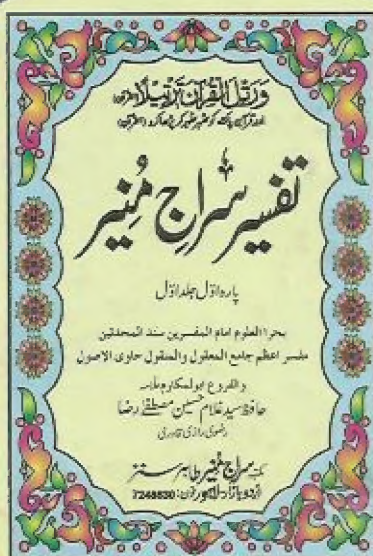 وَرَتِّلِ الْقُرْآنَ تَرْتِيلًا (القرآن)
اور قرآن پاک کو ٹھہر ٹھہر کر پڑھا کرو (القرآن)
تفسیر سراجِ مُنیر
پارہ اوّل جلد اوّل
بحر العلوم امام المفسرین سند المحدثین
مفسر اعظم جامع المعقول والمنقول حاوی الاصول
والفروع ابوالمکارم علامہ
حافظ سید غلام حسین مصطفٰے رضا
رضوی رازی قادری
مکتبہ سراج منیر طاہر سنٹر
اردو بازار لاہور فون: 7248630